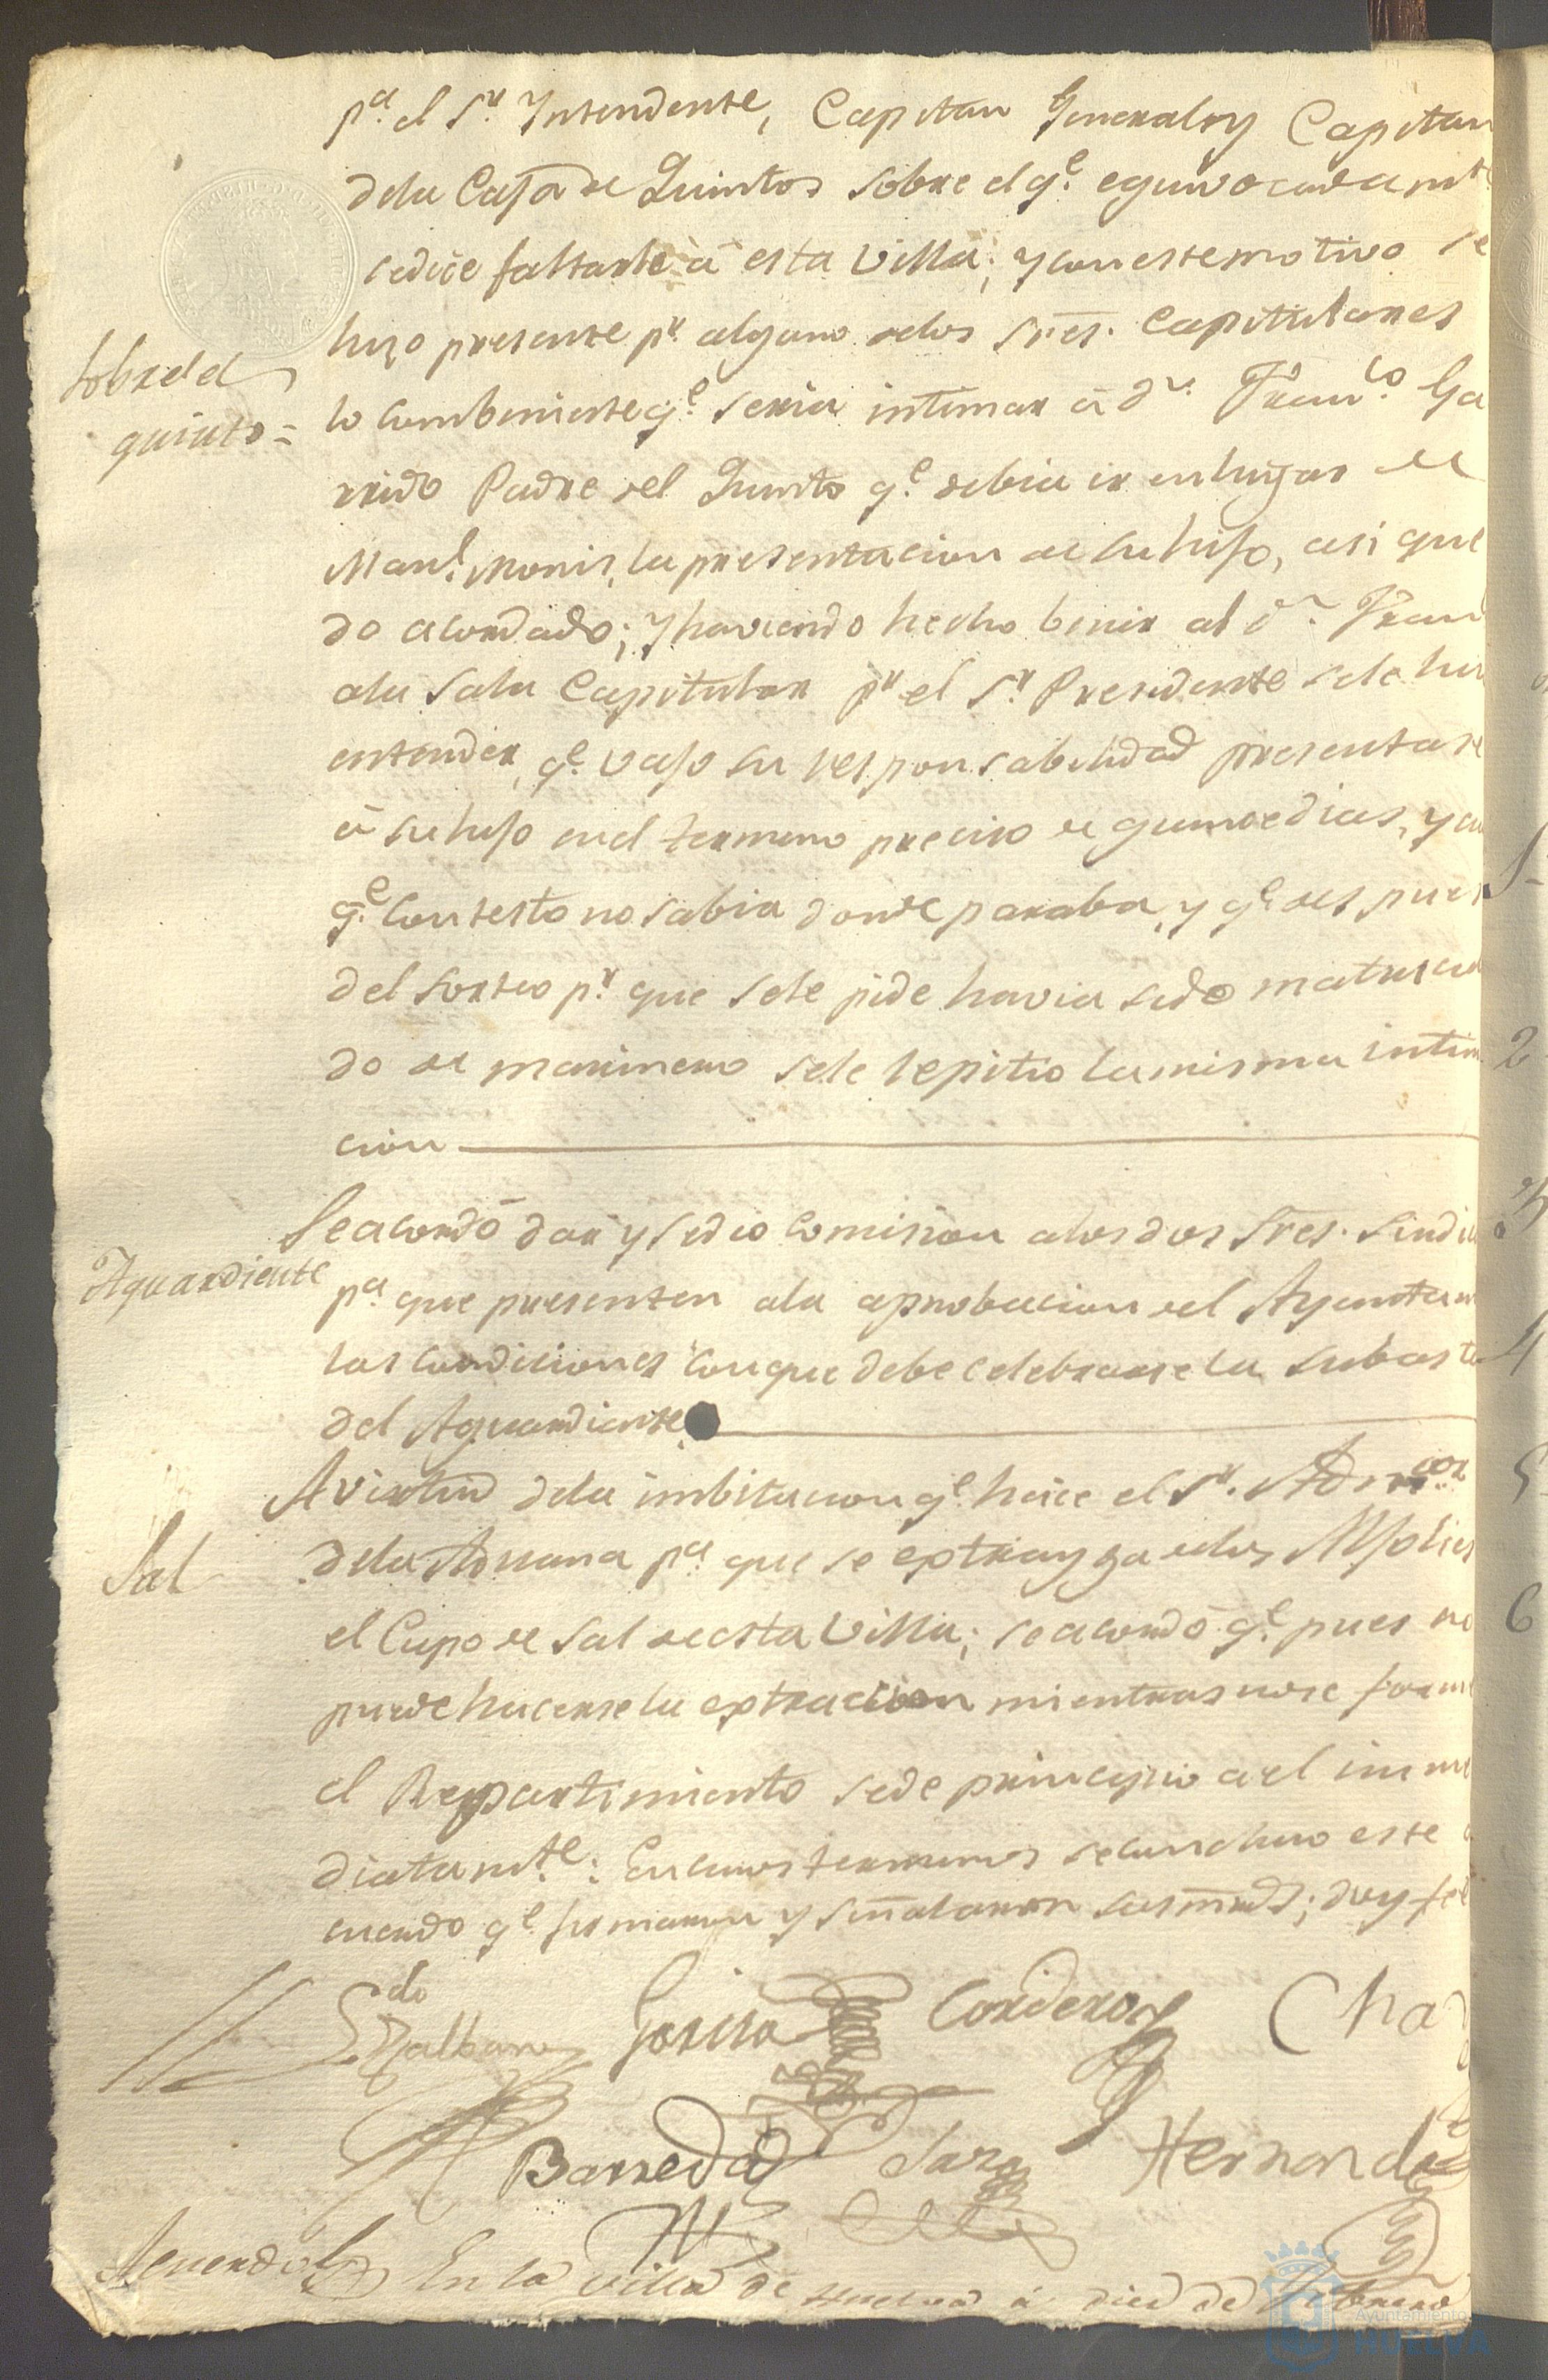 pª. el Sr. Yntendente, Capitan General y Capitan
dela Caja de Quintos sobre el qe. equivocadamte.
sedice faltarle à esta Villa; y con este motivo se
hizo presente pr. alguno delos Sres. Capitulares
Sobre el
quinto =
lo combeniente qe. seria intimar à Dn. Franco. Ga
rrido Padre del Quinto qe. debia ir en lugar de
Manl. Monis, la presentacion de su hijo, asi que
do acordado; y haviendo hecho benir al Dn. Fran
ala Sala Capitular pr. el Sr. Presidente sele hi
entender, qe. vajo su responsabilidad presentase
à su hijo en el termino preciso de quince dias, y
qe. contesto no sabia donde paraba, y qe. despues
del sorteo pr. que sele pide havia sido matricula
do de marinero sele repitio la misma intim
cion
Aguardiente
Se acordó dar y se dio comision alos dos Sres. Sindic
pª. que presenten ala aprobacion del Ayuntam
las condiciones con que debe celebrarse la subasta
del Aguardiente
Sal
A virtud dela imbitacion qe. hace el Sr. Admor.
dela Aduana pª. que se extrayga delos Alfolies
el Cupo de Sal de esta Villa; se acordó qe. pues no
puede hacerse la extraccion mientras no se forme
el Repartimiento sede principio a el inme
diatamte.: En cuios terminos se concluio este a
cuerdo qe. firmaron y señalaron sus mrds; doy fee
Ldo
Balbuena Garcia Cordero Cha
Barreda Jara Hernand
Acuerdo En la villa de Huelva á diez de Febrero
Ayuntamiento
HUELVA